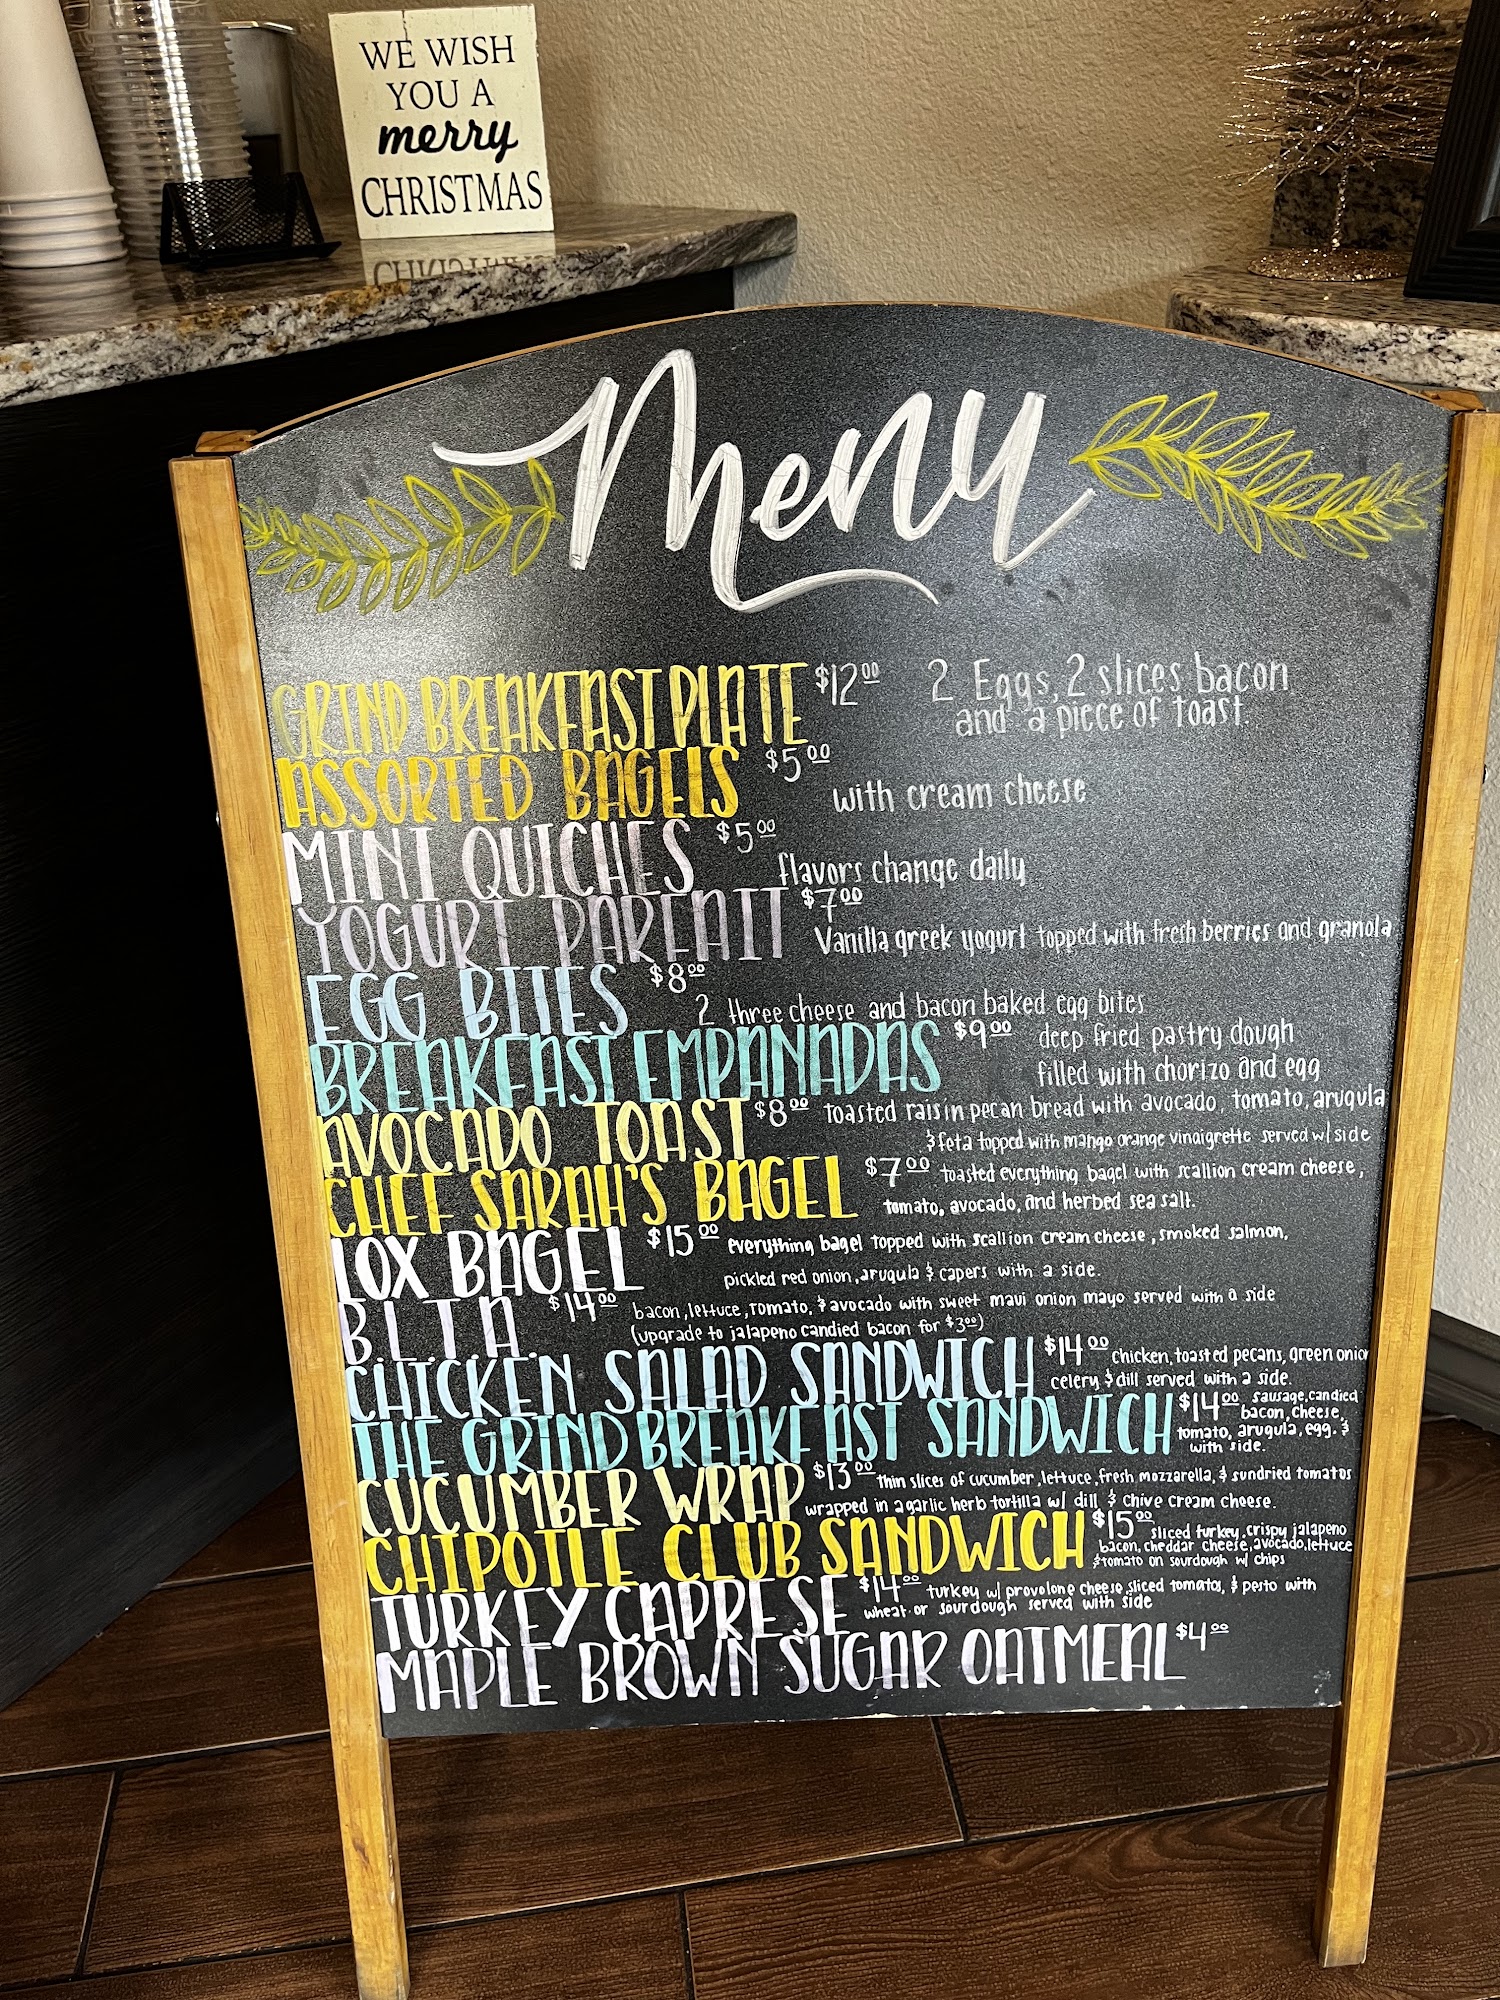 WE WISH
YOU A
merry
CHRISTMAS
Menu
GRIND BREAKFAST PLATE $12.00 2 Eggs, 2 slices bacon
and a piece of toast.
ASSORTED BAGELS $5.00
with cream cheese
MINI QUICHES $5.00
flavors change daily
YOGURT PARFAIT $7.00
Vanilla greek yogurt topped with fresh berries and granola
EGG BITES $8.00
2 three cheese and bacon baked egg bites
BREAKFAST EMPANADAS $9.00 deep fried pastry dough
filled with chorizo and egg
AVOCADO TOAST $8.00 toasted raisin pecan bread with avocado, tomato, arugula
& feta topped with mango orange vinaigrette served w/ side
CHEF SARAH'S BAGEL $7.00 toasted everything bagel with scallion cream cheese,
tomato, avocado, and herbed sea salt.
LOX BAGEL $15.00 everything bagel topped with scallion cream cheese, smoked salmon,
pickled red onion, arugula & capers with a side.
B.L.T.A. $14.00 bacon, lettuce, tomato, & avocado with sweet maui onion mayo served with a side
(upgrade to jalapeno candied bacon for $3.00)
CHICKEN SALAD SANDWICH $14.00 chicken, toasted pecans, green onion
celery & dill served with a side.
THE GRIND BREAKFAST SANDWICH $14.00 sausage, candied
bacon, cheese,
tomato, arugula, egg. &
with side.
CUCUMBER WRAP $13.00 Thin slices of cucumber, lettuce, fresh mozzarella, & sundried tomatos
wrapped in a garlic herb tortilla w/ dill & chive cream cheese.
CHIPOTLE CLUB SANDWICH $15.00 sliced turkey, crispy jalapeno
bacon, cheddar cheese, avocado, lettuce
& tomato on sourdough w/ chips
TURKEY CAPRESE $14.00 turkey w/ provolone cheese, sliced tomatos, & pesto with
wheat or sourdough served with side
MAPLE BROWN SUGAR OATMEAL $4.00